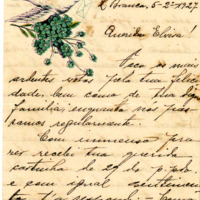 Branca, 5-2-1927
Querida Elvira!
Faço os mais
ardentes votos pela tua felici
dade, bem como de tua
familia, enquanto nós pas
samos regularmente.
Com immenso pra
zer recebi tua querida
cartinha de 29 do p. pdo
e com igual